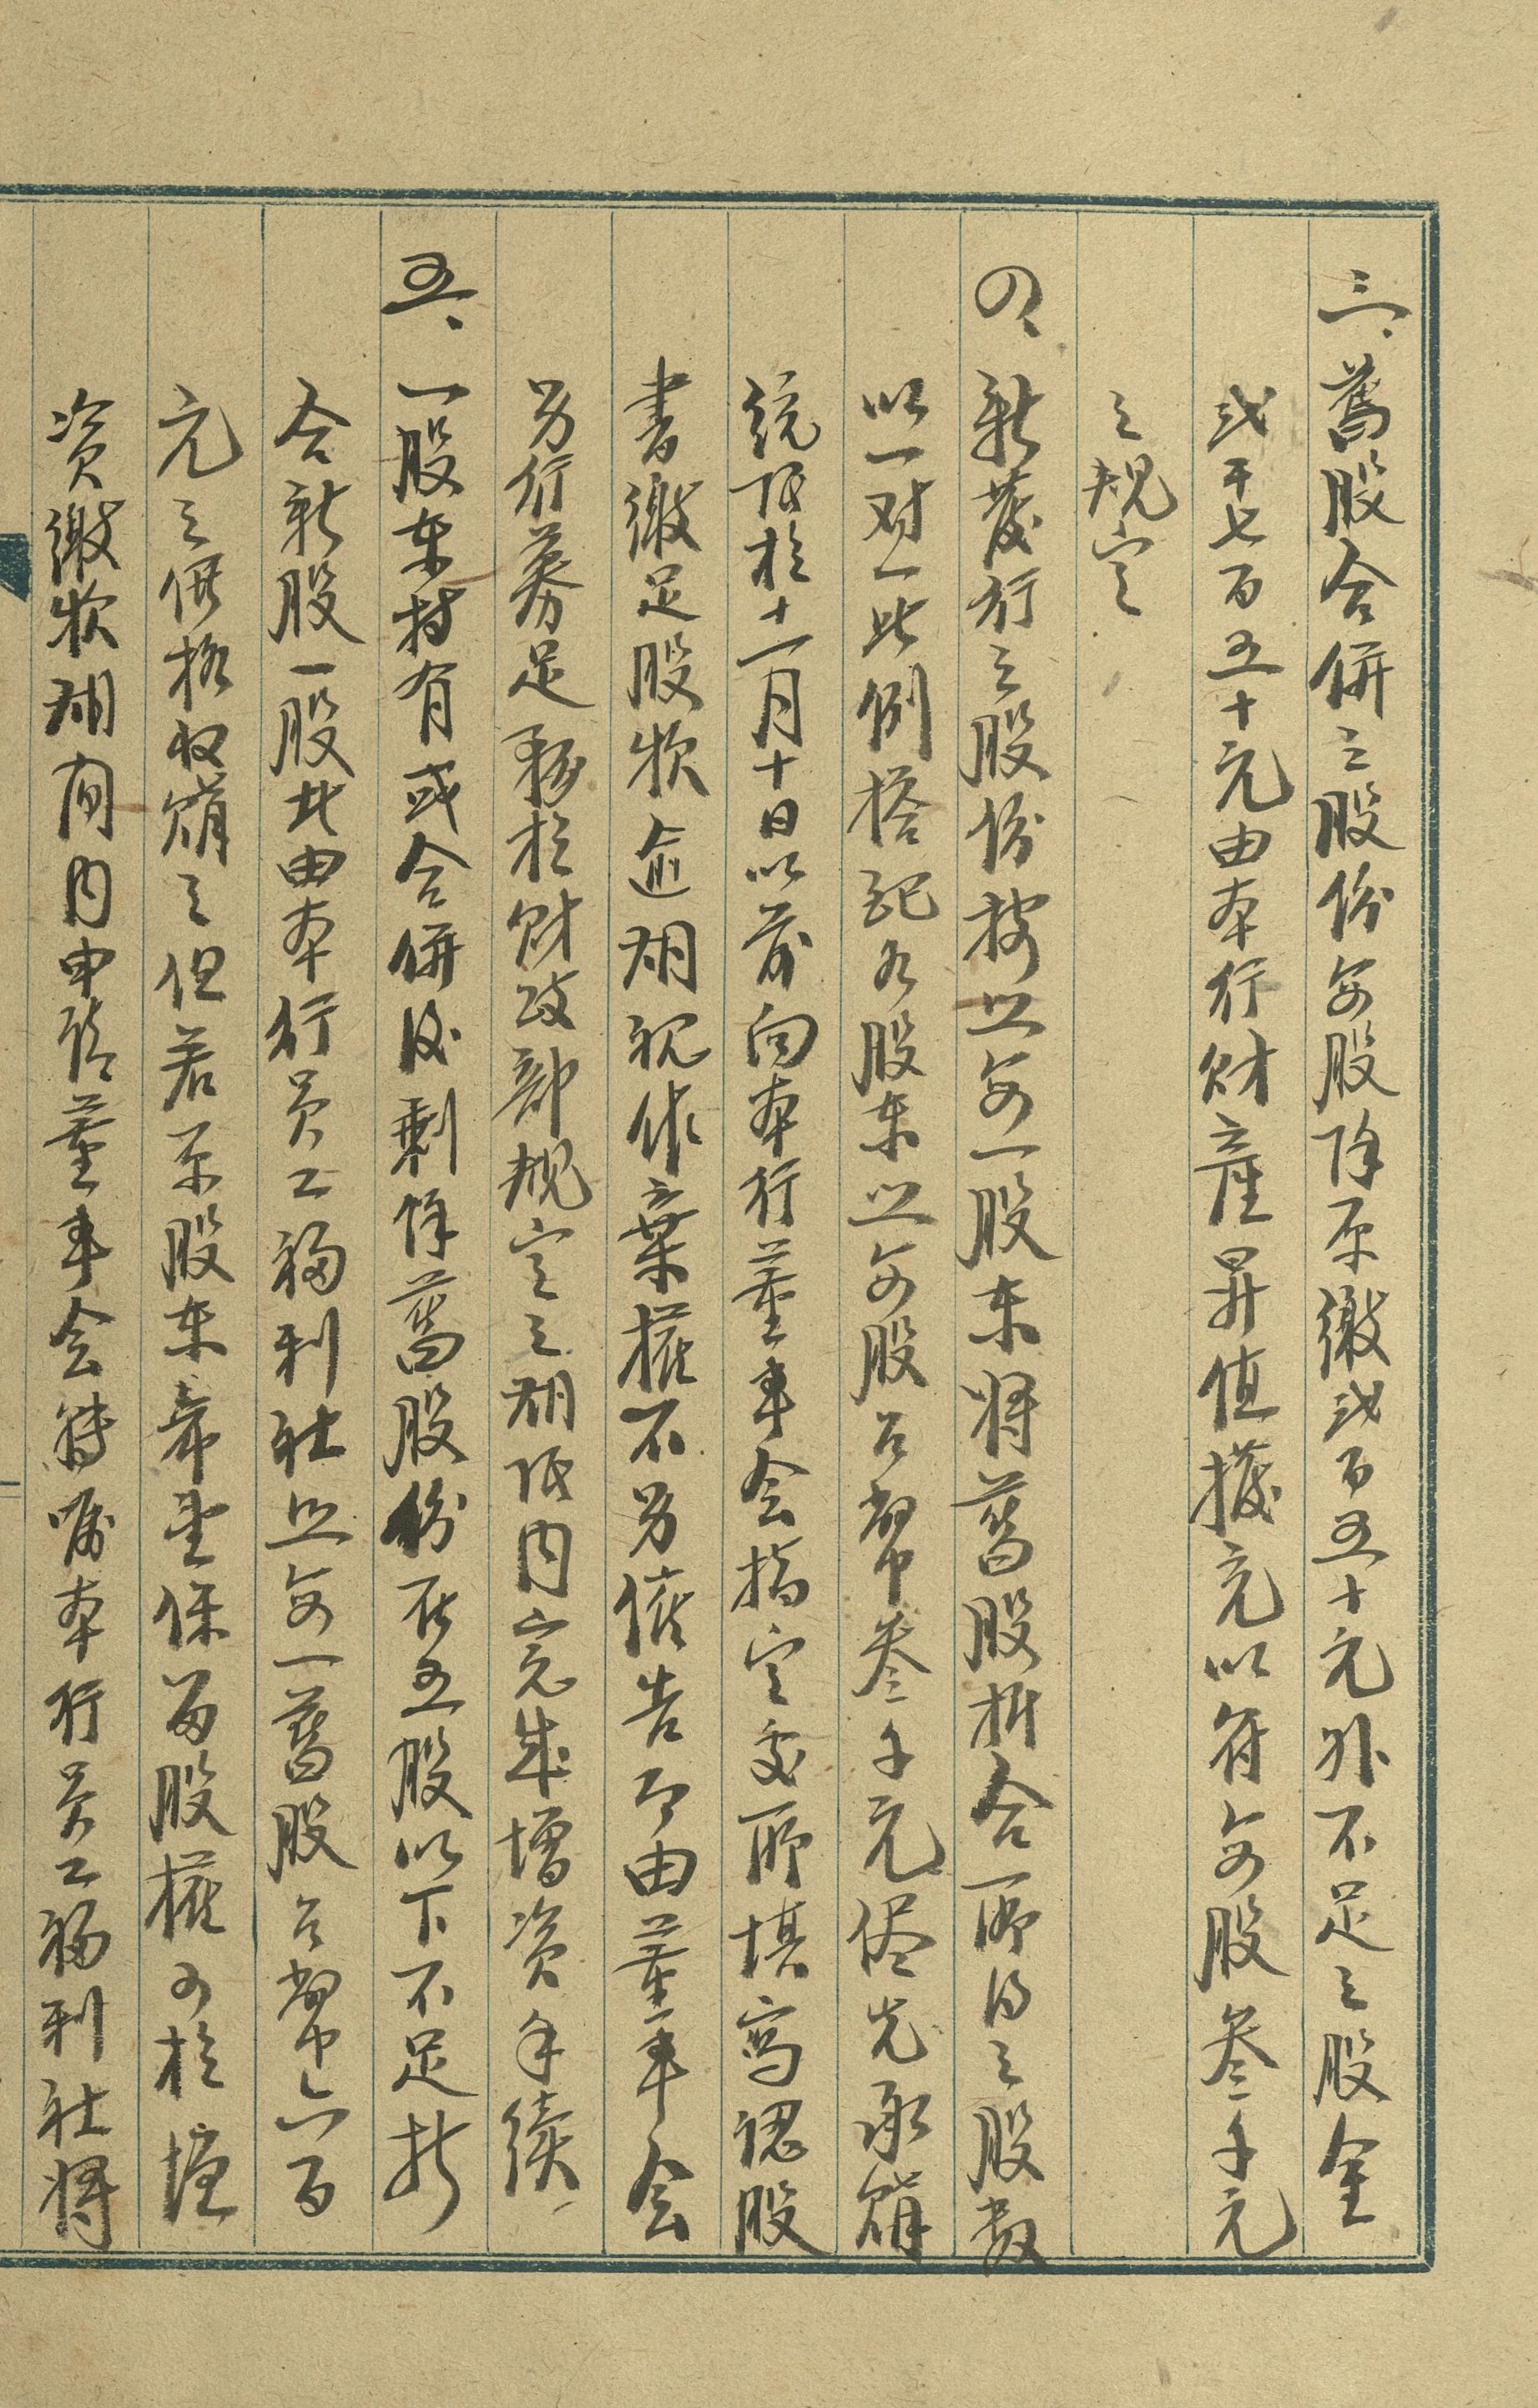 三、舊股合併之股份每股除原繳弍百五十元外不足之股金
弍千七百五十元由本行財產昇值撥充以符每股叁千元
之規定
四、新發行之股份按照每一股东將舊股折合所得之股数
以一对一比例搭配各股东照每股台幣叁千元優先承購
統限於十一月十日以前向本行董事会指定處所填寫認股
書繳足股款逾期視作棄權不另催告即由董事会
另行募足務於财政部規定之期限内完成增资手續、
五、一股东持有或合併後剩餘舊股份在五股以下不足折
合新股一股者由本行員工福利社照每一舊股台幣六百
元之價格收購之但若原股东希望保留股權可於增
资繳款期间内申請董事会轉囑本行員工福利社將